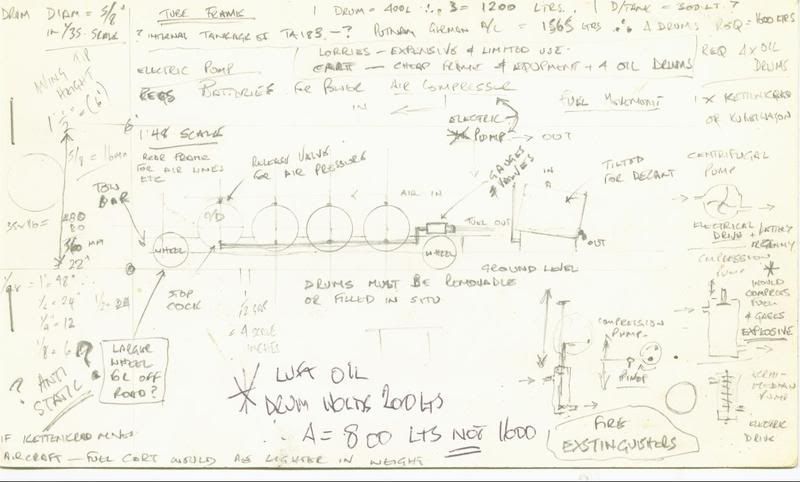 DRUM DIAM = 5/8"
IN 1/35 SCALE
TUBE FRAME
1 DRUM = 400L ∴ 3 = 1200 LTRS.
1 D/TANK = 300 LT.?
? INTERNAL TANKAGE OF TA 183 - ?
PUTNAM GERMAN A/C = 1565 LTRS ∴ 4 DRUMS REQ = 1600 LTRS
LORRIES - EXPENSIVE & LIMITED USE.
CART - CHEAP FRAME & EQUIPMENT + 4 OIL DRUMS
REQ 4 x OIL
DRUMS
ELECTRIC PUMP
REQS BATTERIES FOR POWER AIR COMPRESSOR
IN
FUEL MOVEMENT
1 x KETTENKRAD
OR KUBELWAGON
WING TIP
HEIGHT
1 1/2" = (6')
6'
1:48 SCALE
ELECTRIC
PUMP → OUT
5/8 = 16mm
REAR FRAME
FOR AIR LINES
ETC
RELEASE VALVE
FOR AIR PRESSURE
GAUGES
& VALVES
TILTED
FOR DECANT
IN
OUT
CENTRIFUGAL
PUMP
TOW
BAR
O/D
AIR IN
FUEL OUT
WHEEL
WHEEL
ELECTRICAL
DRIVE +
35 x 16 =
560 mm
22"
GROUND LEVEL
COMPRESSION
PUMP
WOULD
COMPRESS
FUEL
& GASES
EXPLOSIVE
1/48 = 1" = 48"
1/2 = 24
1/4 = 12
1/8 = 6
STOP
COCK
DRUMS MUST BE REMOVABLE
OR FILLED IN SITU
= 4 SCALE
INCHES
COMPRESSION
PUMP
PUMP
LARGER
WHEEL
FOR OFF
ROAD?
? ANTI
STATIC ?
LUFT OIL
DRUM HOLDS 200 LTS
∴ 4 = 800 LTS NOT 1600
FIRE
EXSTINGUISHERS
PUMP
ELECTRIC
DRIVE
IF KETTENKRAD MOVES
AIRCRAFT - FUEL CART WOULD BE LIGHTER IN WEIGHT